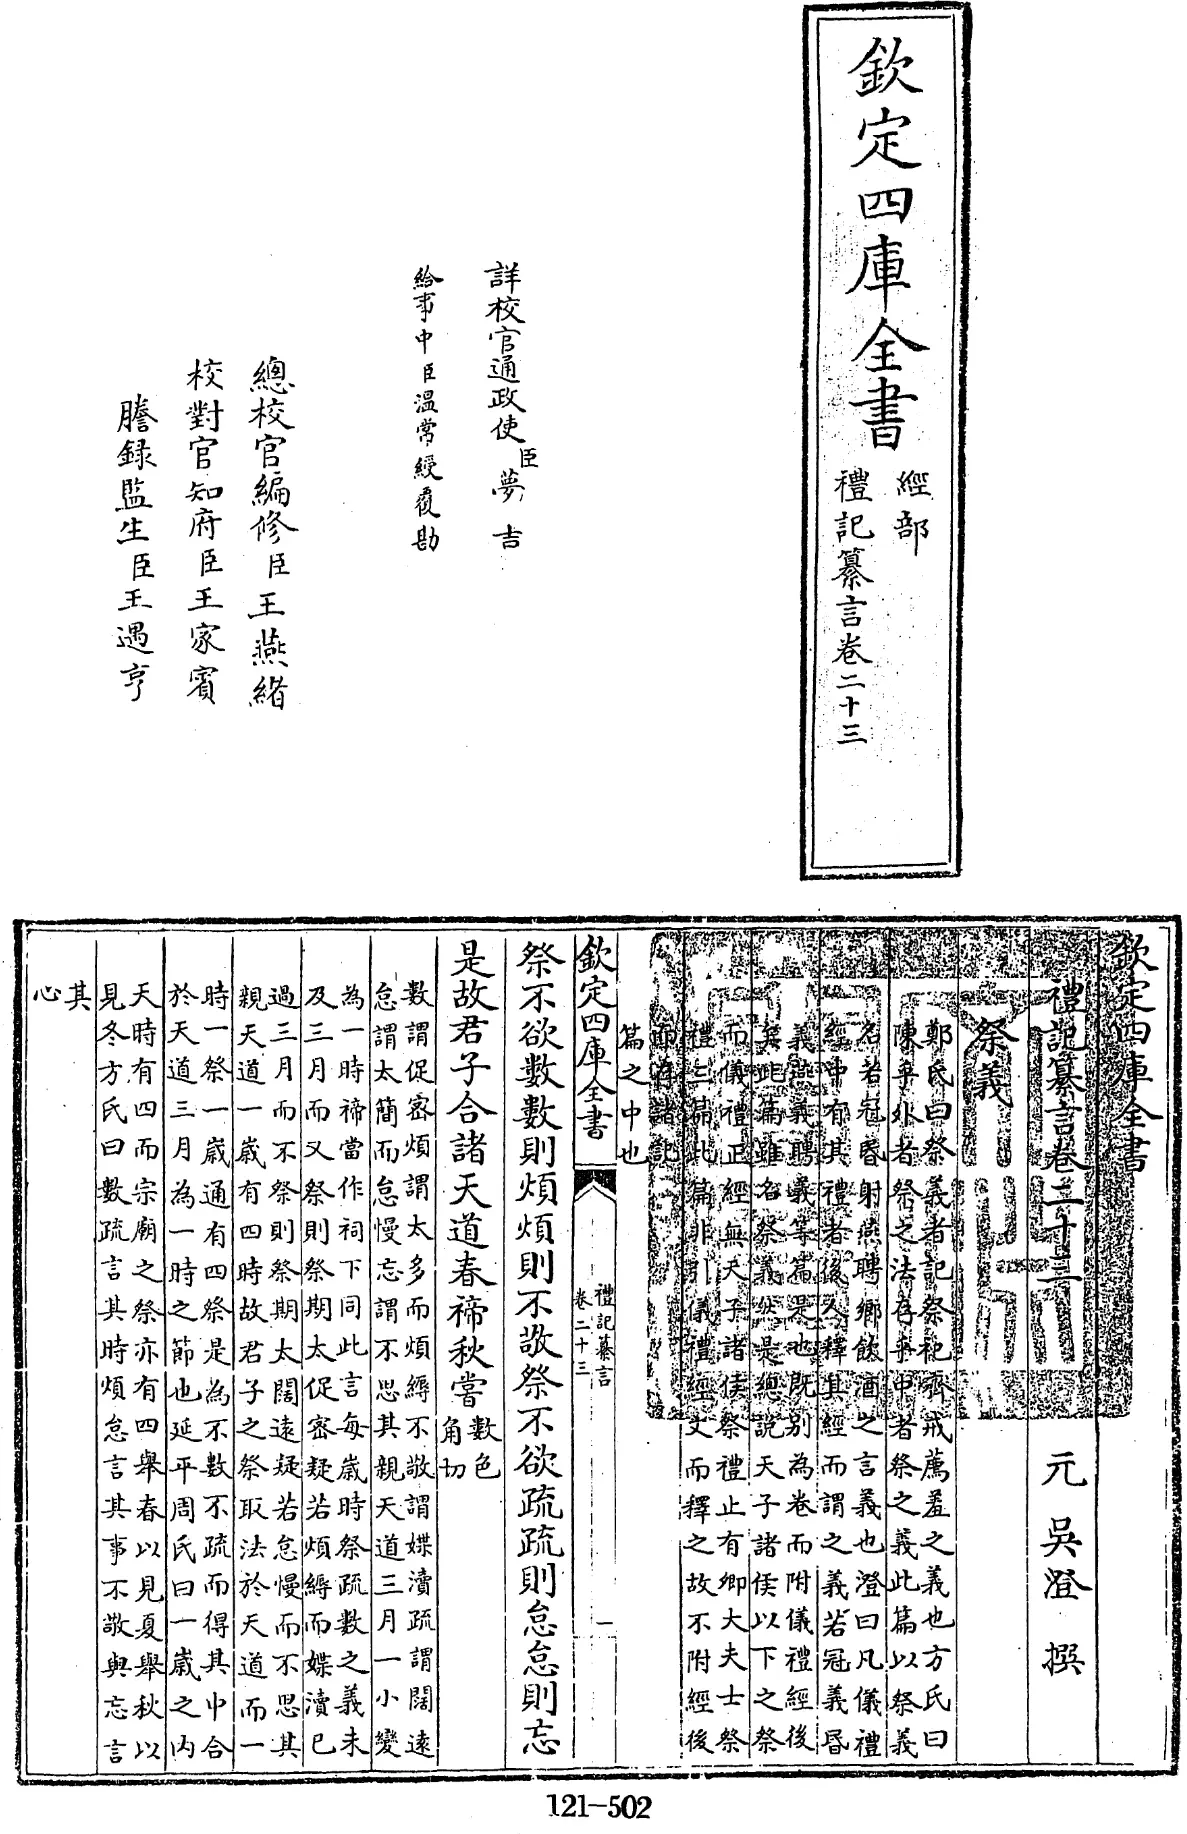 欽定四庫全書
經部
禮記纂言卷二十三
詳校官通政使臣夢吉
給事中臣溫常綬覆勘
總校官編修臣王燕緒
校對官知府臣王家賓
謄錄監生臣王遇亨
欽定四庫全書
禮記纂言卷二十三
元 吳澄 撰
祭義
鄭氏曰祭義者記祭祀齊戒薦羞之義也方氏曰
陳乎外者祭之法存乎中者祭之義此篇以祭義
名若冠昬射燕聘鄉飲酒之言義也澄曰凡儀禮
經中有其禮者後人釋其經而謂之義若冠義昬
義燕義聘義等篇是也既別為卷而附儀禮經後
矣此篇雖名祭義然是總說天子諸侯以下之祭
而儀禮正經無天子諸侯祭禮止有卿大夫士祭
禮三篇此篇非引儀禮經文而釋之故不附經後
而存諸記
篇之中也
欽定四庫全書
禮記纂言
卷二十三
一
祭不欲數數則煩煩則不敬祭不欲疏疏則怠怠則忘
是故君子合諸天道春禘秋嘗數色
角切
數謂促密煩謂太多而煩縟不敬謂媟瀆疏謂闊遠
怠謂太簡而怠慢忘謂不思其親天道三月一小變
為一時禘當作祠下同此言每歲時祭疏數之義未
及三月而又祭則祭期太促密疑若煩縟而媟瀆已
過三月而不祭則祭期太闊遠疑若怠慢而不思其
親天道一歲有四時故君子之祭取法於天道而一
時一祭一歲通有四祭是為不數不疏而得其中合
於天道三月為一時之節也延平周氏曰一歲之內
天時有四而宗廟之祭亦有四舉春以見夏舉秋以
見冬方氏曰數疏言其時煩怠言其事不敬與忘言
其
心
121-502